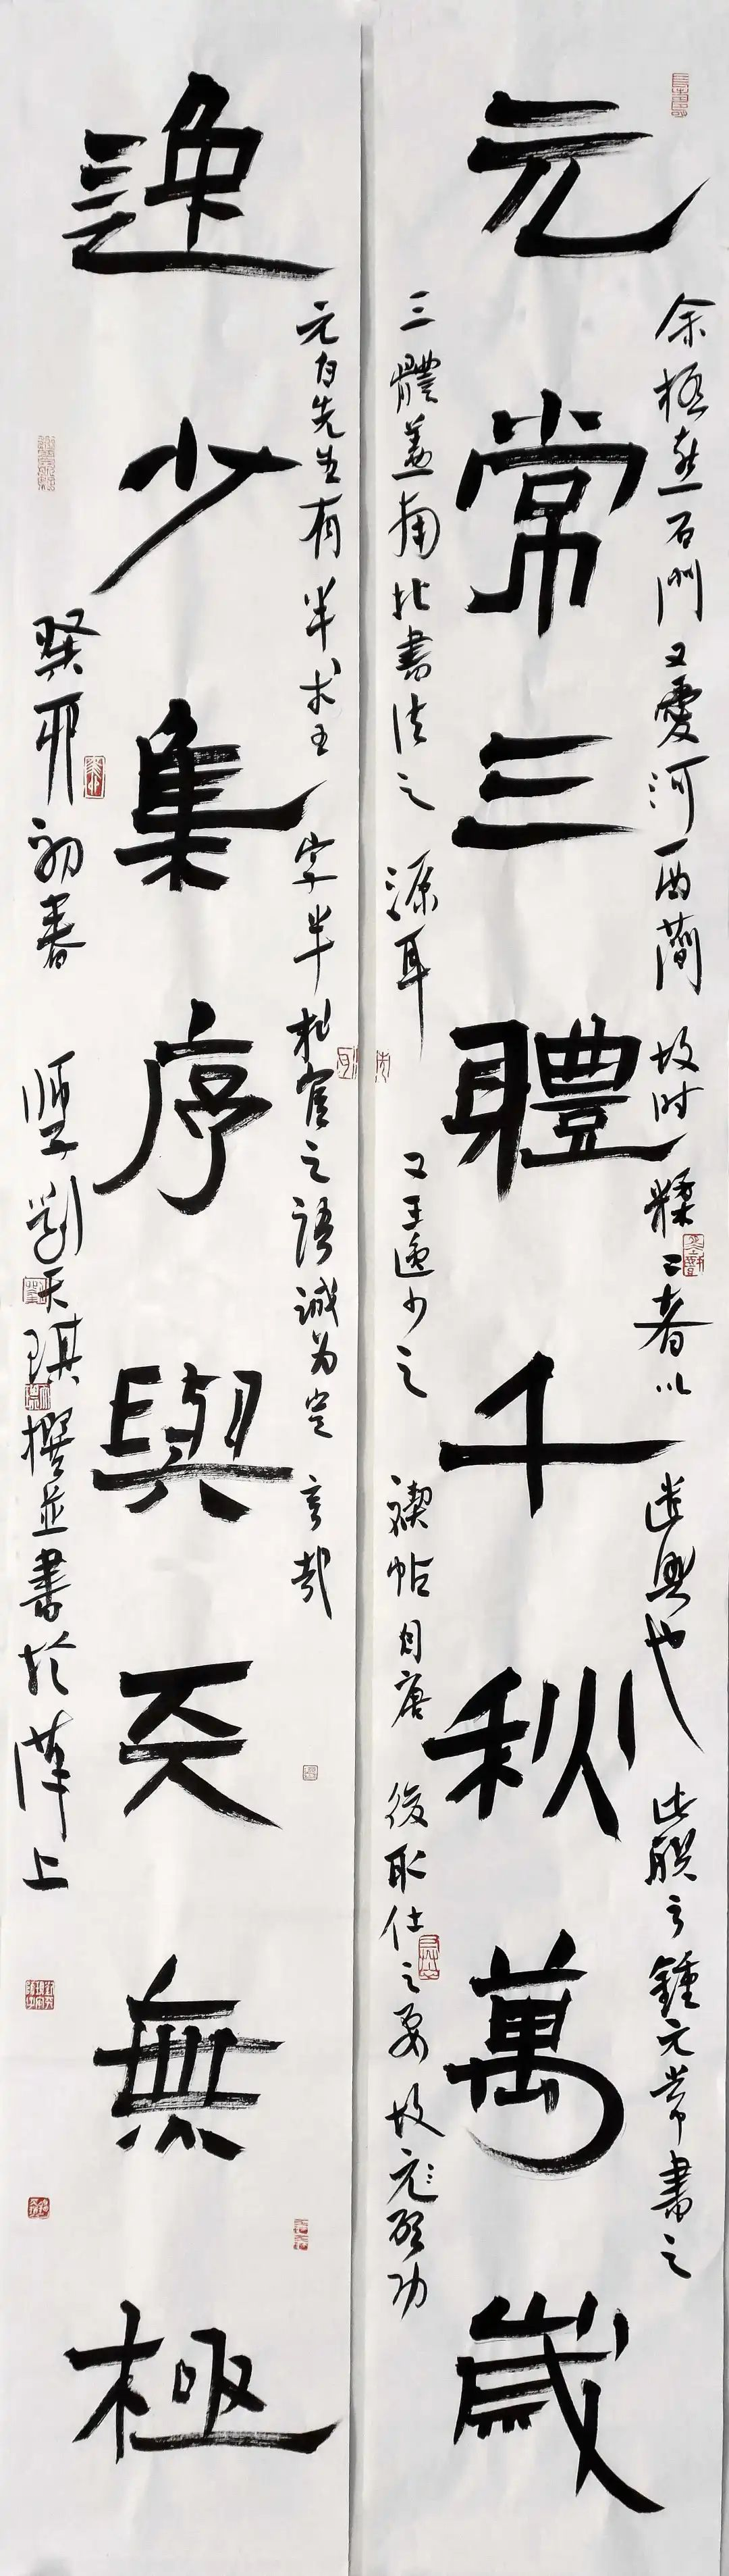 元常三體千秋萬歲
余極愛石門又愛河西簡故時糅二者以遣興也此聯言鍾元常書之
三體蓋南北書法之源耳又王逸少之禊帖自唐後取仕之要故元啓功
逸少集序與天無極
元白先生有半求王字半
官之語誠为定言哉
癸卯初春
劉天琪撰並書於滻上